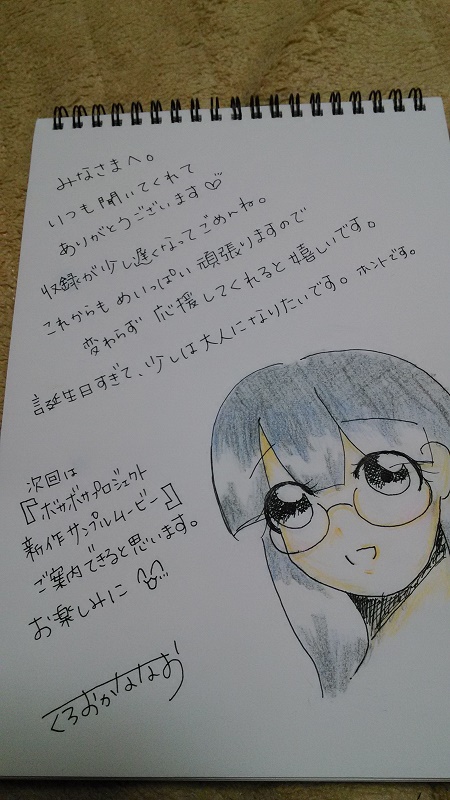 みなさまへ。
いつも聞いてくれて
ありがとうございます♡
収録が少し遅くなってごめんね。
これからもめいっぱい頑張りますので
変わらず応援してくれると嬉しいです。
誕生日すぎて、少しは大人になりたいです。ホントです。
次回は
『ボカボカプロジェクト
新作サンプルムービー』
ご案内できると思います。
お楽しみに
くろおかななお